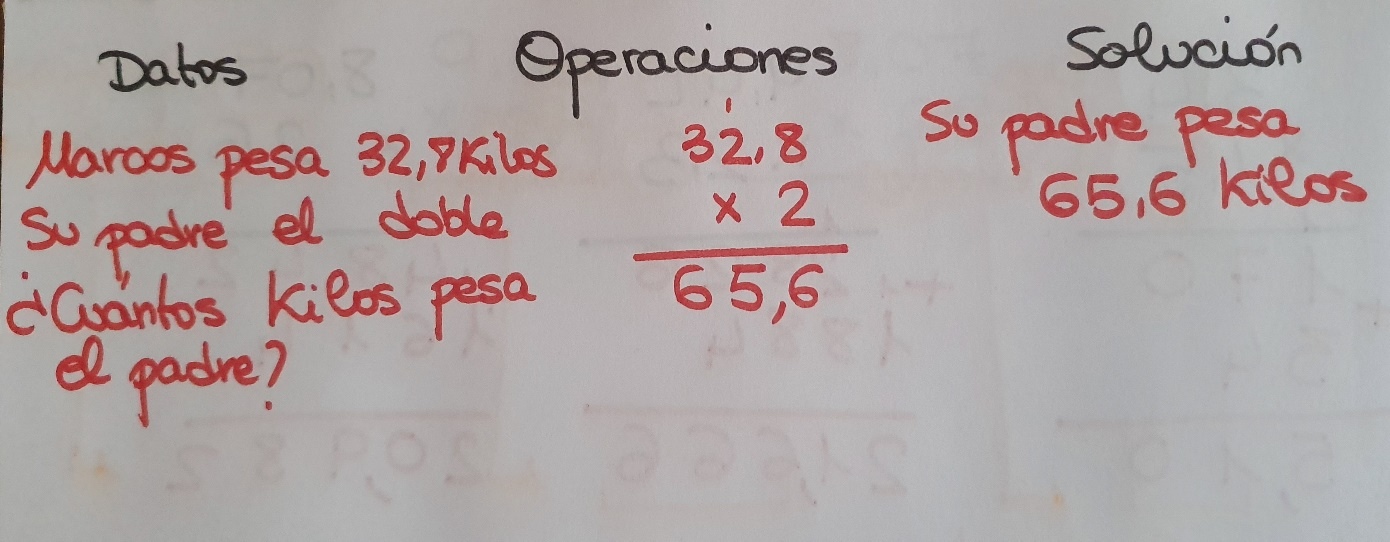 Datos
Marcos pesa 32,8 Kilos
Su padre el doble
¿Cuántos Kilos pesa
el padre?
Operaciones
1
32,8
x 2
65,6
Solución
Su padre pesa
65,6 Kilos